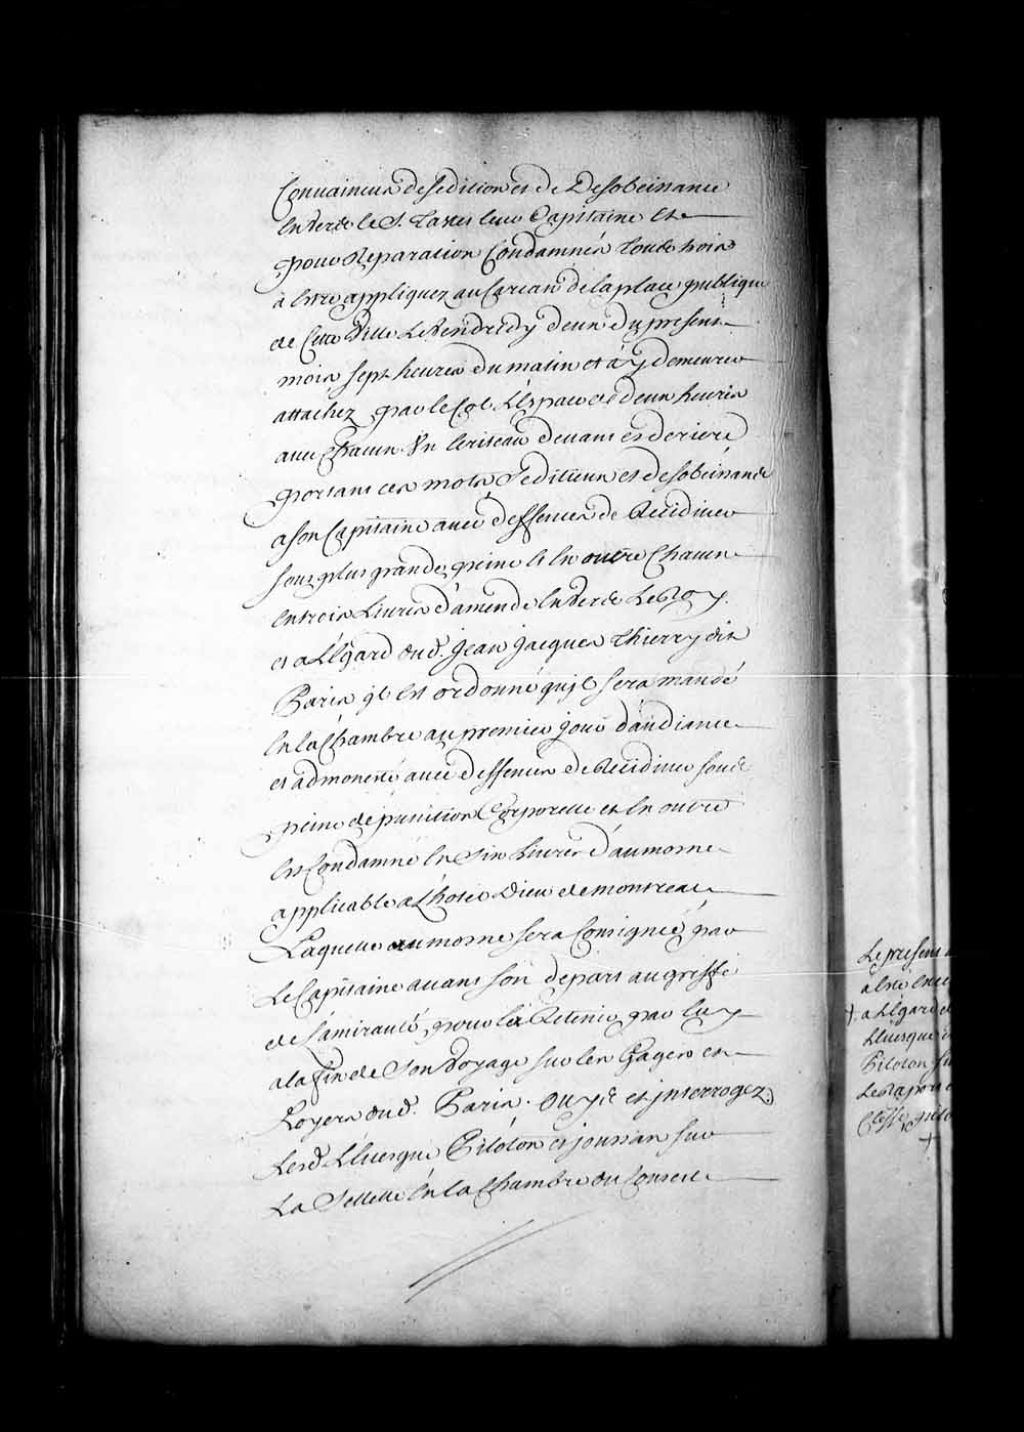 Convaincus de sedition et de Desobeissance
Envers le S. Tastes leur Capitaine Et
pour Reparation Condamnés tous trois
à Estre appliquez au Carcan de la place publique
de Cette Ville Le Vendredy deux du present
mois sept heures du matin et à y demeurer
attachez par le Col L'Espace de deux heures
avec Chacun Un Ecriteau devant et deriere
portant ces mots Seditieux et desobeissance
a son Capitaine avec deffences de Recidiver
sous plus grande peine Et En outre Chacun
En trois Livres d'amende Envers Le Roy.
et a L'Egard dud. Jean Jacques Thierry dit
Paris il Est ordonné qu'il sera mandé
En la Chambre au premier jour d'audiance
et admonesté avec deffences de Recidiver sous
peine de punition Corporelle et En outre
Est Condamné En Six Livres d'aumosne
applicable a L'hostel Dieu de montreal
Laquelle aumosne sera Consignée par
Le Capitaine avant son depart au greffe
de L'amirauté, pour la Retenir par luy
a la fin de Son Voyage sur les Gages et
Loyers dud. Paris. Ouys et interrogez
Lesd. L'Evesque Pitoton et joussan sur
La Sellette En la Chambre du Conseil
Le present
a Esté
a L'Egard
L'Evesque
Pitoton